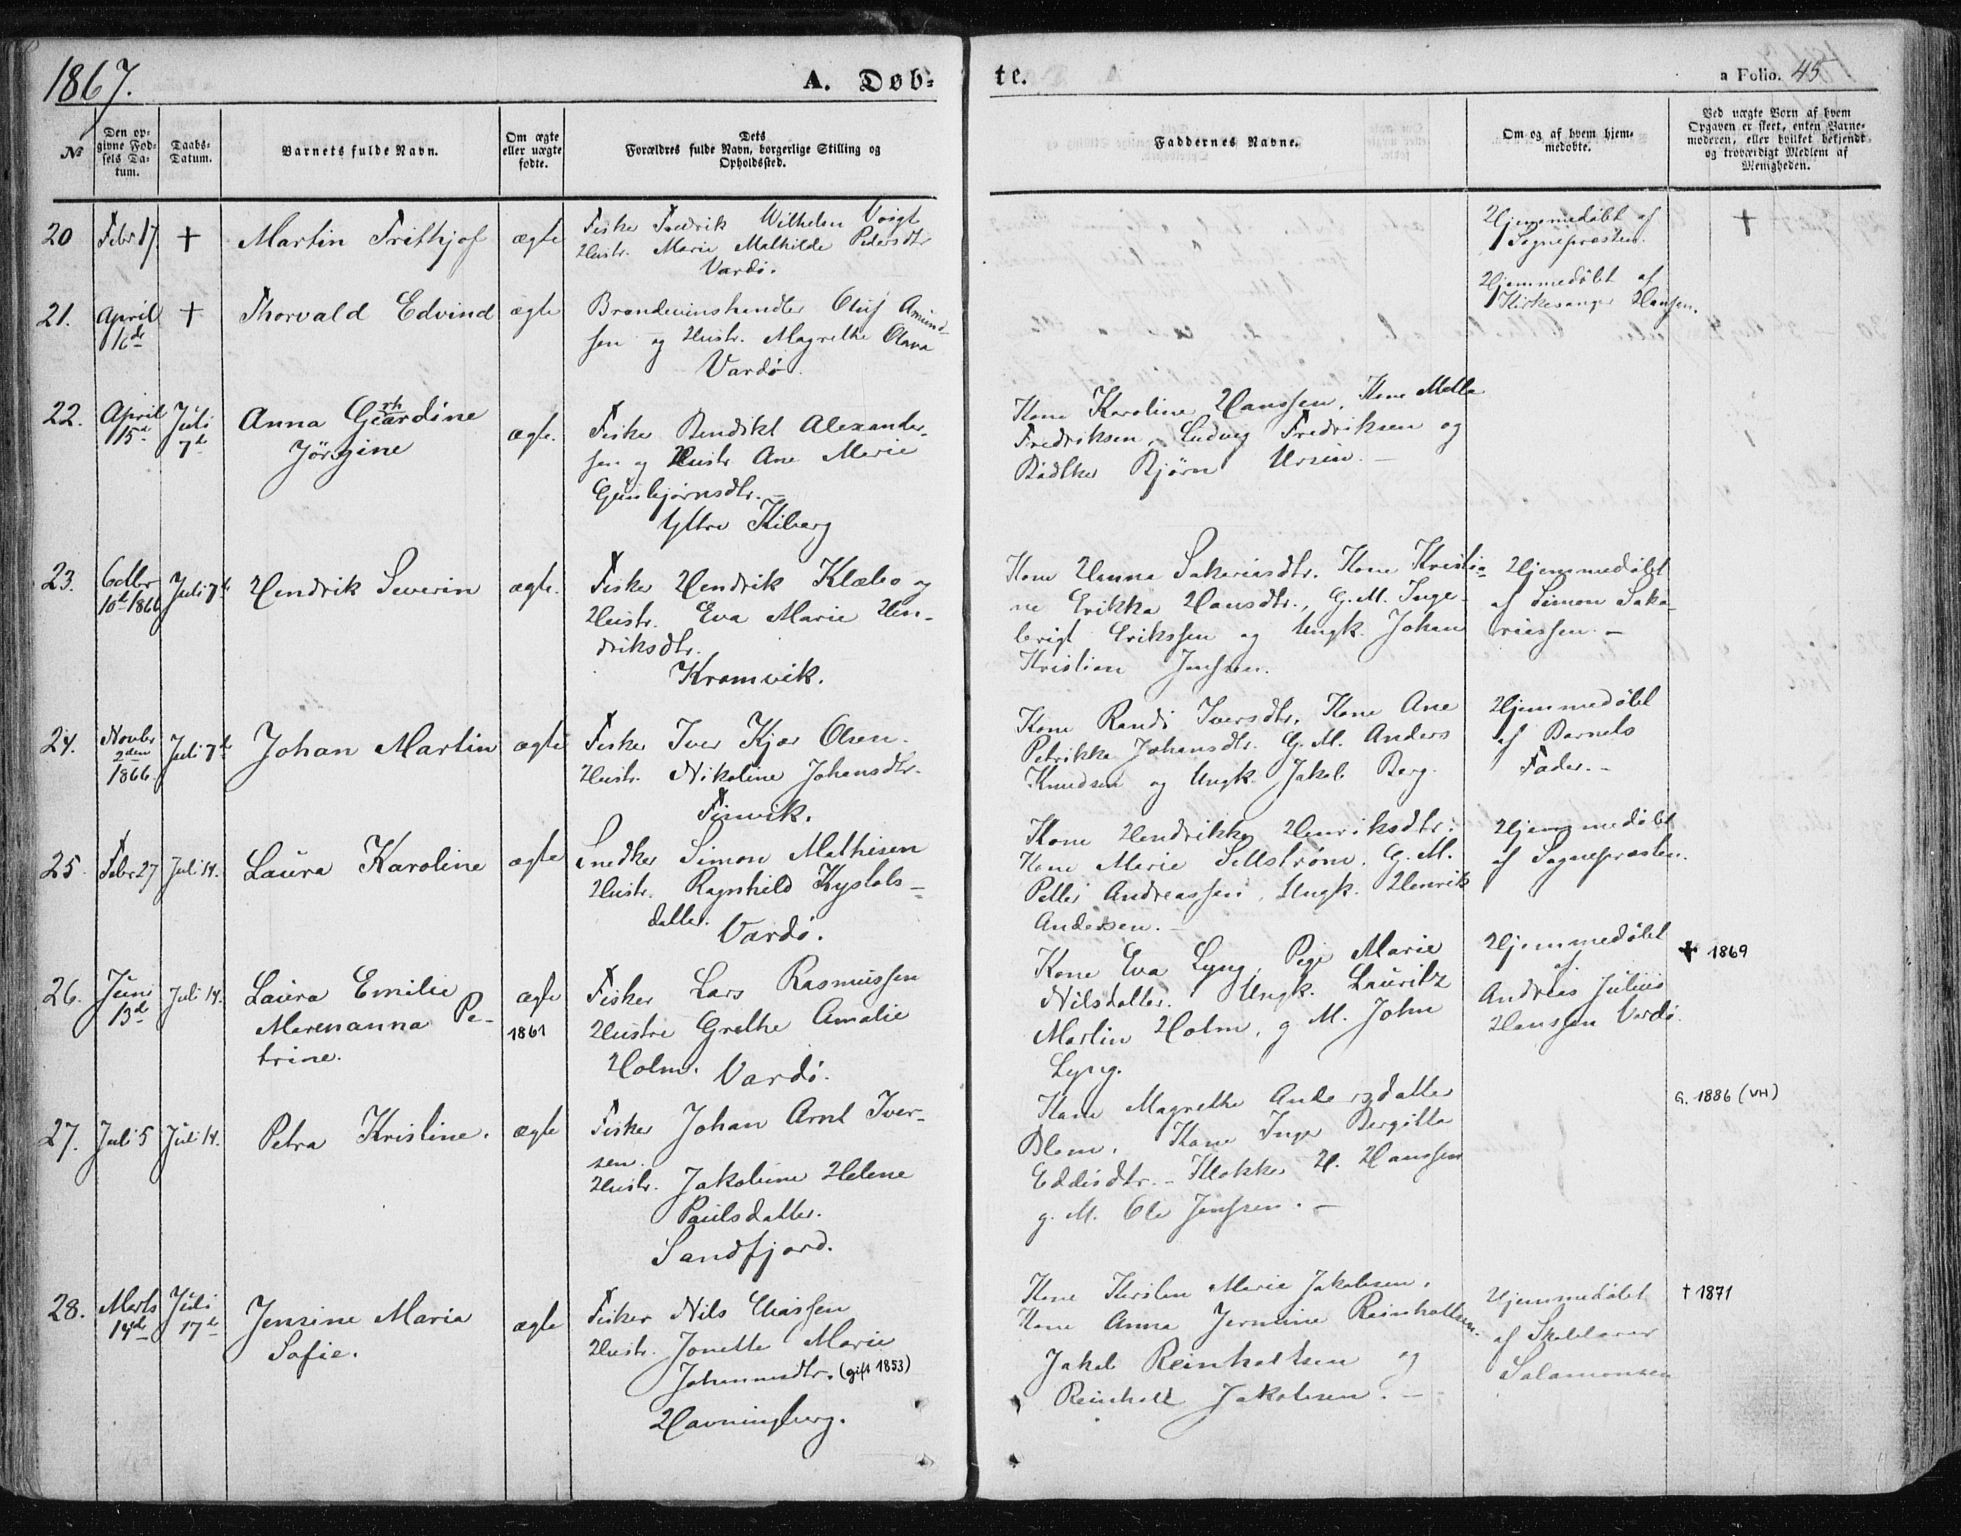 1867.
A. Døb-
te.
a Folio. 45
№
Den op-
givne Fød-
sels Da-
tum.
Daabs-
Datum.
Barnets fulde Navn.
Om ægte
eller uægte
fødte.
Dets
Forældres fulde Navn, borgerlige Stilling og
Opholdssted.
Faddernes Navne.
Om og af hvem hjem-
medøbte.
Ved uægte Børn af hvem
Opgaven er skeet, enten Barne-
moderen, eller hvilket bekjendt
og troværdigt Medlem af
Menigheden.
20
Febr 17.
+
Martin Frithjof
ægte
Fisker Fredrik Wilhelm Voigt
Hustr. Marie Mathilde Petersdtr
Vardø.
Hjemmedøbt af
Sognepræsten.
+
21.
April
16de
+
Thorvald Edvind
ægte
Brændeviinshendler Oluf Amund-
sen og Hustr. Magrethe Olava
Vardø.
Hjemmedøbt af
Kirkesanger Hansen.
22.
April
15d
Juli
7d
Anna Gerhardine
Jørgine
ægte.
Fisker Bendikt Alexander-
sen og Hustr Ane Marie
Gunbjørnsdtr. –
Yttre Kiberg
Kone Karoline Hanssen, Kone Metta
Fredriksen, Ludvig Fredriksen og
Bødker Bjørn Ursin. –
23.
Octbr
10d 1866
Juli 7d
Hendrik Severin
ægte.
Fisker Hendrik Klæbo og
Hustr. Eva Marie Hen-
driksdtr.
Kramvik.
Kone Hanna Sakariasdtr. Kone Kristia-
ne Erikka Hansdtr., G.M. Inge-
brigt Erikssen og Ungk. Johan
Kristian Jenssen.
Hjemmedøbt
af Simon Saka-
riassen. –
24.
Novbr
2den
1866.
Juli 7d
Johan Martin
ægte
Fisker Iver Kjær Olsen.
Hustr. Nikoline Johansdtr.
Finvik.
Kone Randi Iversdtr. Kone Ane
Petrikke Johansdtr. G. M. Anders
Knudsen og Ungk. Jakob Berg.
Hjemmedøbt
af Barnets
Fader. –
25.
Febr 27
Juli 14.
Laura Karoline
ægte
Snedker Simon Mathisen
Hustr. Ragnhild Kystols-
datter.
Vardø.
Kone Hendrikke Henriksdtr.
Kone Marie Sellstrøm. G. M.
Petter Andreassen, Ungk. Henrik
Andersen. –
Hjemmedøbt
af Sognepræsten.
26.
Juni
13d
Juli 14.
Laura Emilie
Marenanna Pe-
trine.
ægte
1861
Fisker Lars Rasmussen
Hustru Grethe Amalie
Holm. Vardø.
Kone Eva Lyng, Pige Marie
Nilsdatter. Ungk. Lauritz
Martin Holm, g M. John
Lyng.
Hjemmedøbt
af
Andreas Julius
Hanssen Vardø.
+ 1869
27.
Juli 5
Juli 14.
Petra Kristine.
ægte
Fisker Johan Arnt Iver-
sen.
Hustr. Jakobine Helene
Paulsdatter.
Sandfjord.
Kone Magrethe Andersdatter
Blom. Kone Inger Bergitta
Eddisdtr. – Klokker H. Hanssen
g. M. Ole Jenssen. –
G. 1886 (VH)
28.
Marts
14de
Juli
17d
Jensine Maria
Sofie.
ægte
Fisker Nils Eliassen
Hustr. Jonette Marie
Johannesdtr. (gift 1853)
Havningberg.
Kone Kirsten Marie Jakobsen.
Kone Anna Jermine Reinholtsen.
Jakob Reinholtsen og
Reinholt Jakobsen. –
Hjemmedøbt
af Skolelærer
Salamonsen
† 1871